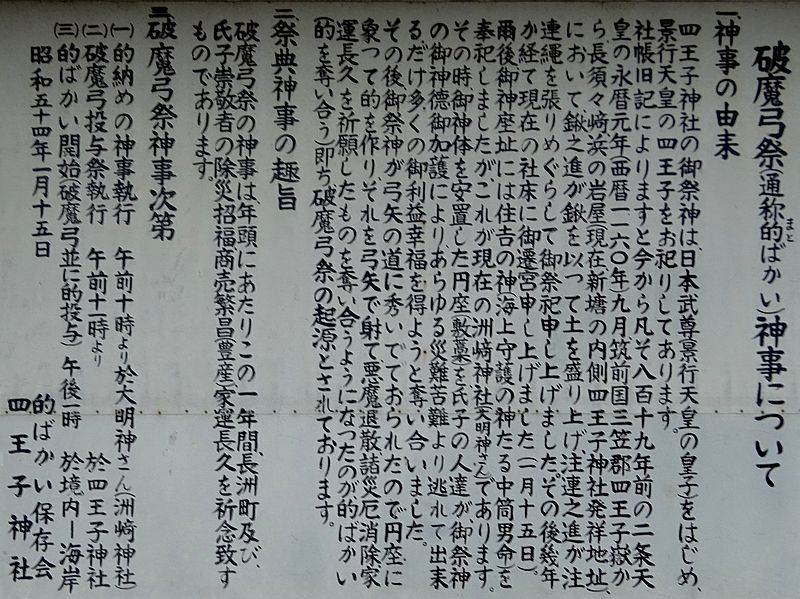 破魔弓祭(通称的ばかい)神事について
まと
一、神事の由来
四王子神社の御祭神は、日本武尊景行天皇の皇子をはじめ、
景行天皇の四王子をお祀りしてあります。
社帳旧記によりますと今から凡そ八百十九年前の二条天
皇の永暦元年(西暦一一六〇年九月筑前国三笠郡四王子嶽か
ら長須々﨑浜の岩屋(現在新塘の内側四王子神社発祥地址)、
において、鍬之進が鍬を以って土を盛り上げ、注連之進が注
連縄を張りめぐらして御祭祀申し上げました、その後幾年
か経て現在の社床に御遷宮申し上げました(一月十五日)。
爾後御神座址には住吉の神海上守護の神たる中筒男命を
奉祀しましたがこれが現在の洲﨑神社(大明神さん)であります。
その時、御神体を安置した円座(敷藁)を氏子の人達が、御祭神
の御神徳御加護によりあらゆる災難苦難より逃れて出来
るだけ多くの御利益幸福を得ようと奪い合いました。
その後御祭神が弓矢の道に秀いでておられたので円座に
象って的を作りそれを弓矢で射て悪魔退散諸災厄消除家
運長久を祈願したものを奪い合うようになったのが的ばかい
(的を奪い合う)即ち破魔弓祭の起源とされております。
二、祭典神事の趣旨
破魔弓祭の神事は、年頭にあたりこの一年間、長洲町及び、
氏子崇敬者の除災招福商売繁昌豊産、家運長久を祈念致す
ものであります。
三、破魔弓祭神事次第
(一)的納めの神事執行 午前十時より於大明神さん(洲﨑神社)
(二)破魔弓投与祭執行 午前十一時より 於四王子神社
(三)的ばかい開始破魔弓並に的投与 午後一時 於境内ー海岸
昭和五十四年一月十五日
的ばかい保存会
四王子神社